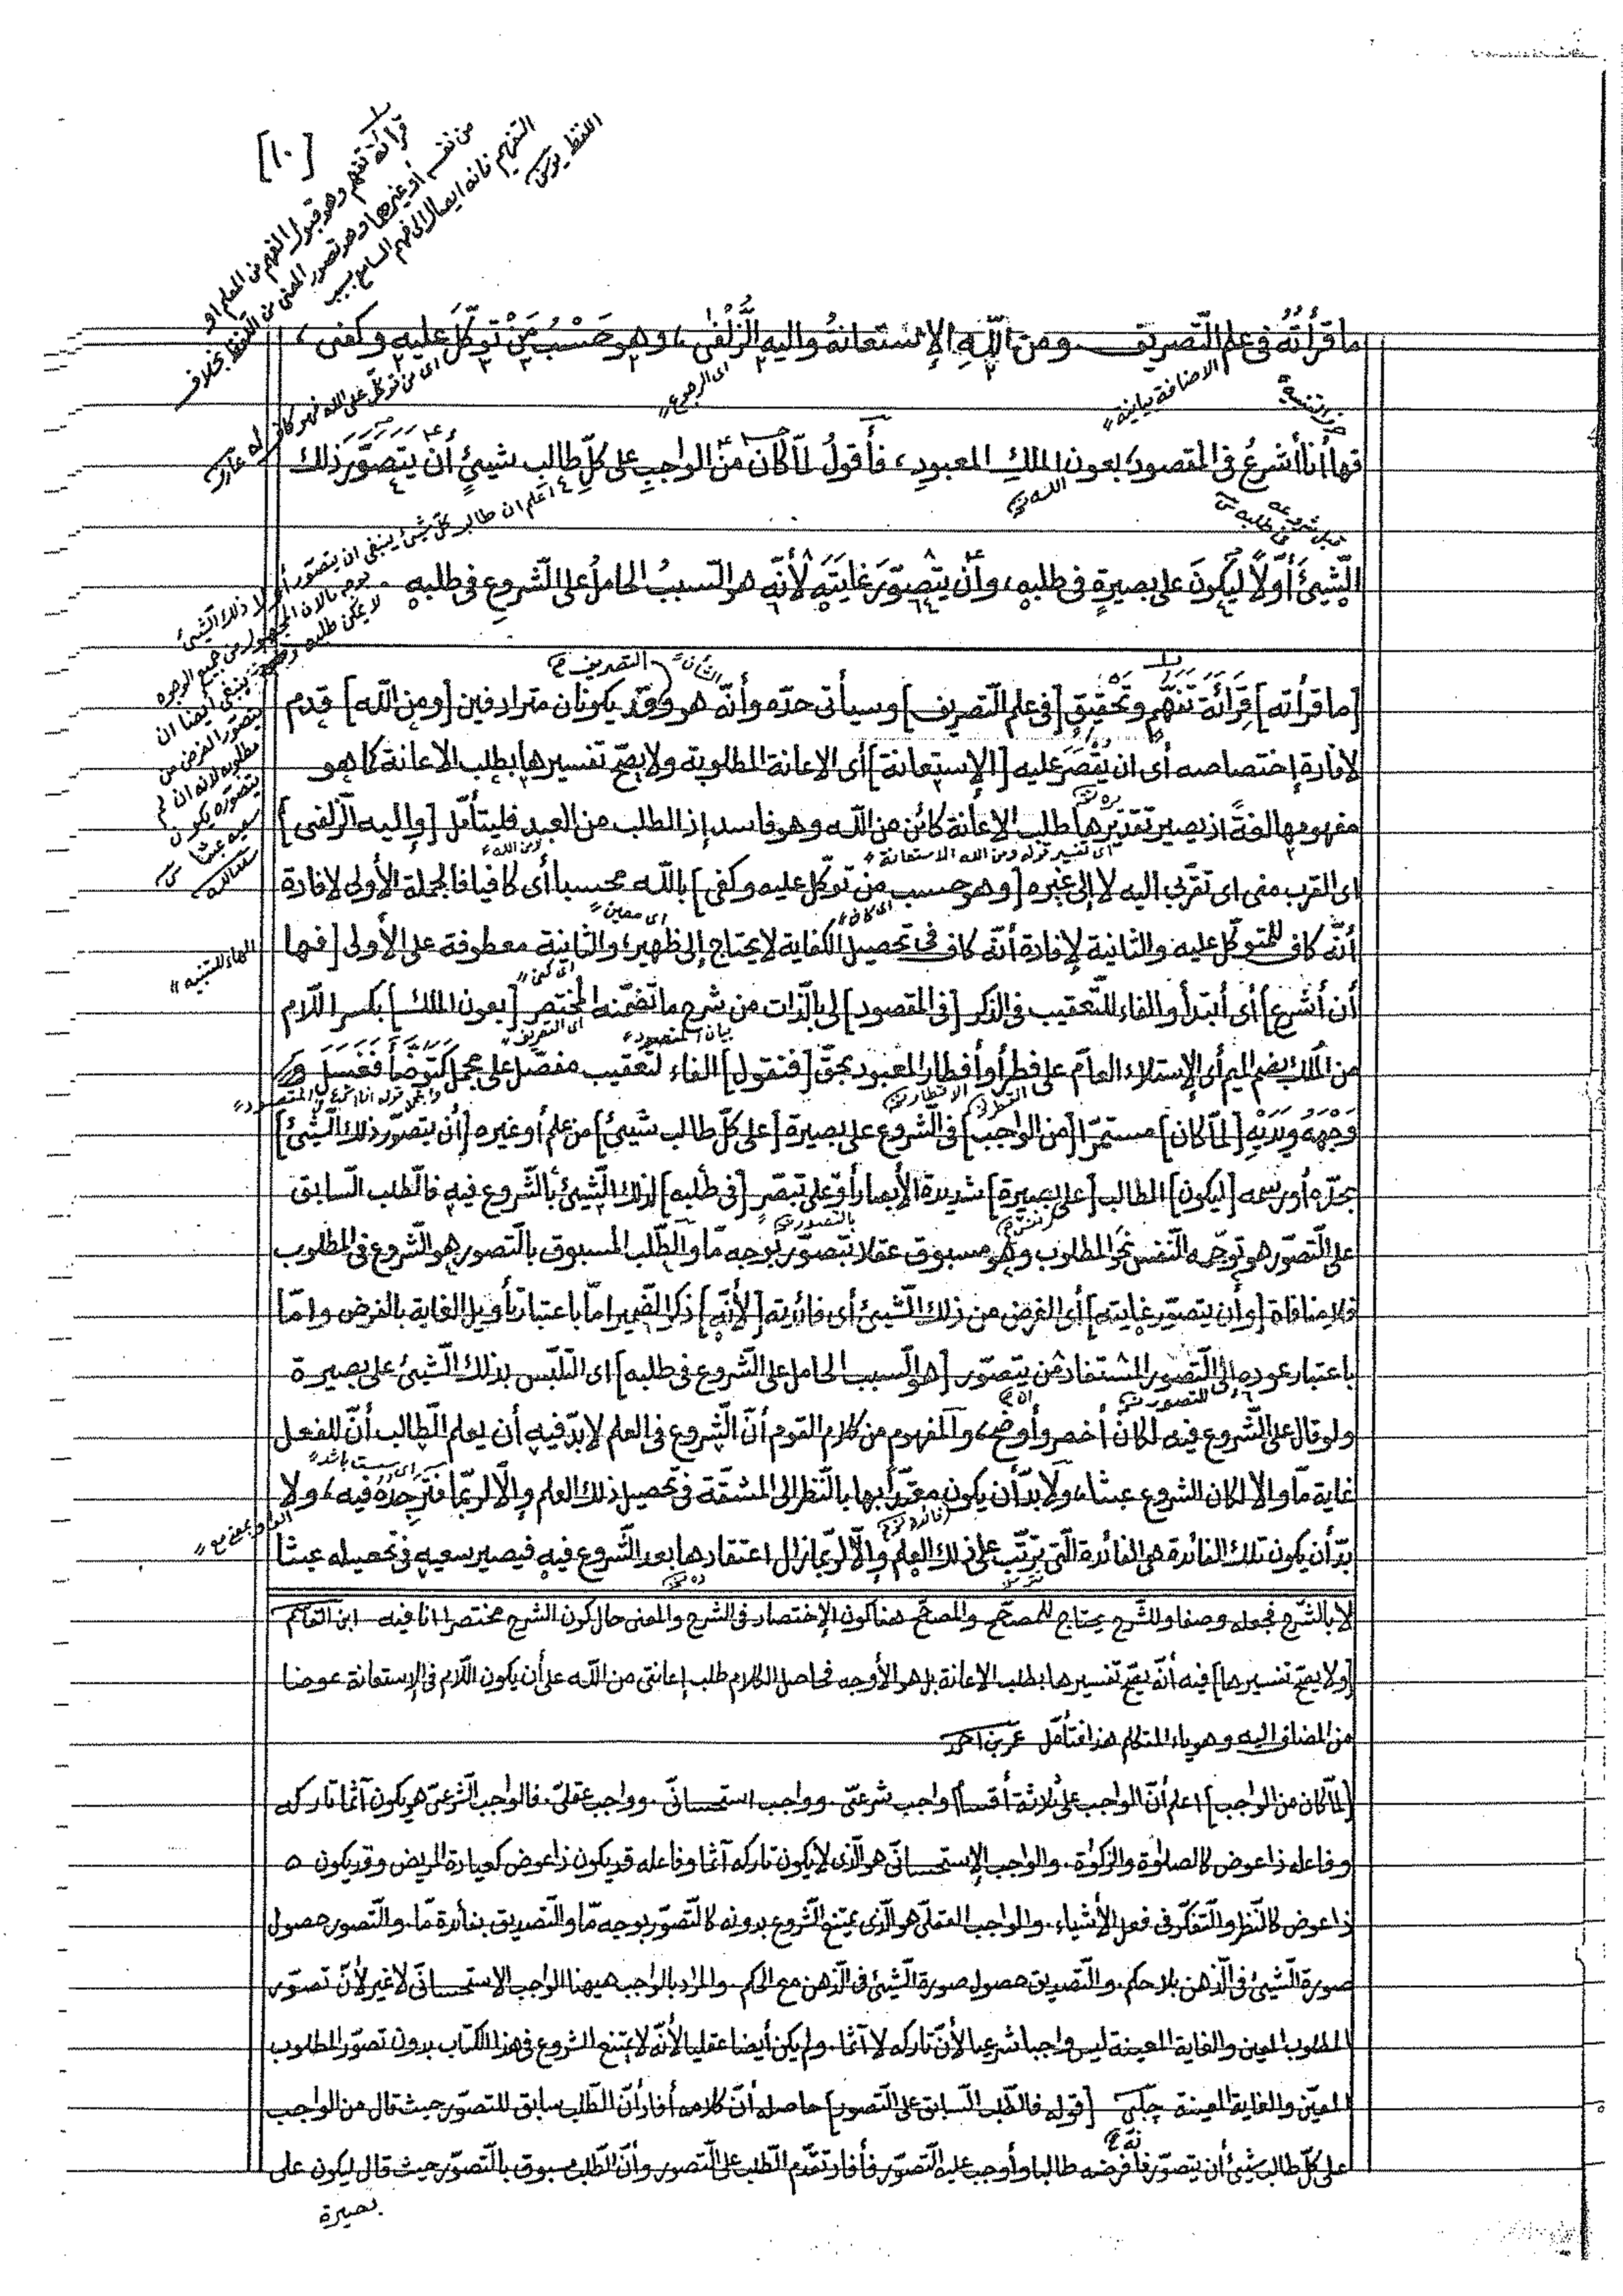 [١٠]
قرائة تفهّم وهو قبول الفهم من المعلم او
من نفسه أو غيرها وهو تصور المعنى من اللفظ بخلاف
التفهيم فانه ايصال الى فهم السامع بسبب
اللفظ
ما قرأتُهُ فى علم التّصريف ومن اللّهِ الإستعانةُ واليه الزُّلْفٰى، وهو حَسْبُ مَنْ توكّلَ عليهِ وكفى،
الاضافة بيانية
اى الرجوع
اى من توكّل على الله فهو كافى له
فها أنا أشرعُ فى المقصودِ بعون الملك المعبودِ، فأقولُ لمّا كان منَ الواجبِ على كلّ طالبِ شيئٍ أن يتصوّر ذلك
اعلم ان طالب كلّ شيئ ينبغى ان يتصوّر أوّلا ذلك الشيئ
الشّيئَ أوّلاً ليكونَ على بصيرةٍ فى طلبهِ، وأن يتصوّرَ غايتَه لأنّه هو السّببُ الحاملُ على الشّروعِ فى طلبهِ
بوجه ما لان المجهول من جميع الوجوه
لا يمكن طلبه
ينبغى أيضا ان
يتصوّر الغرض من
مطلوبه لانه ان لم
يتصوّره يكون
سعيه عبثا
سعد الله
[ما قرأته] قرائة تفهّم وتحقيق [فى علم التّصريف] وسيأتى حدّه وأنّه هو وقد يكونان مترادفين [ومن اللّه] قدم
لافادة إختصاصه أى ان يقصر عليه [الإستعانة] أى الاعانة المطلوبة ولا يصحّ تفسيرها بطلب الاعانة كما هو
مفهومها لغةً اذ يصير تقديرها طلب الاعانة كائن من اللّه وهو فاسد إذ الطلب من العبد فليتأمّل [وإليه الزّلفى]
اى تفسير قوله ومن الله الاستعانة
اى القرب منى اى تقربى اليه لا إلى غيره [وهو حسب من توكّل عليه وكفى] باللّه محسبا أى كافيا فالجملة الأولى لإفادة
أنّه كاف للمتوكّل عليه والثانية لإفادة أنّه كاف فى تحصيل الكفاية لا يحتاج إلى ظهير، والثانية معطوفة على الأولى [فها
اى معين
الهاء للتنبيه
أن أشرع] أى أبتدأ والفاء للتّعقيب فى الذكر [فى المقصود] لى بالذّات من شرح ما تضمّنه المختصر [بعون الملك] بكسر اللّام
بيان المقصود
من المُلك بضم الميم أى الإستلاء العامّ على فطر أو أفطار المعبود بحقّ [فنقول] الفاء لتعقيب مفصّل على مجمل كتوضّأ فغسل
وَجْهَهُ وَيَدَيْهِ [لمّا كان] مستمرّا [من الواجب] فى الشّروع على بصيرة [على كلّ طالب شيئ] من علم أو غيره [أن يتصوّر ذلك الشّيئ]
بحدّه أو رسمه [ليكون] الطالب [على بصيرة] شديدة الأبصار أو على تبصّر [فى طلبه] لذلك الشّيئ بالشّروع فيه فالطّلب السّابق
على التّصوّر هو توجّه النّفس نحو المطلوب وهو مسبوق عقلا بتصوّر بوجه مّا والطّلب المسبوق بالتّصور هو الشّروع فى المطلوب
فلا منافاة [وأن يتصوّر غايته] أى الغرض من ذلك الشّيئ أى فائدته [لأنّه] ذكر الضّمير امّا باعتبار تأويل الغاية بالغرض وامّا
باعتبار عوده إلى التّصور المستفاد من يتصوّر [هو السّبب الحامل على الشّروع فى طلبه] اى التّلبّس بذلك الشّيئ على بصيرة
ولو قال على الشّروع فيه لكان أخصر وأوضح، والمفهوم من كلام القوم أنّ الشّروع فى العلم لا بدّ فيه أن يعلم الطّالب أنّ للفعل
غاية مّا والا لكان الشروع عبثا، ولا بدّ أن يكون معتدّا بها بالنّظر إلى المشقّة فى تحصيل ذلك العلم وإلّا لربّما فتر جدّه فيه، ولا
الواو بمعنى مع
بدّ أن يكون تلك الفائدة هى الفائدة الّتى يترتّب على ذلك العلم وإلّا لربّما زال اعتقادها بعد الشّروع فيه فيصير سعيه فى تحصيله عبثا
لا بالشّرح فجعله وصفا وللشّرح يحتاج للمصحّح والمصحّح هنا كون الإختصار فى الشرح والمعنى حال كون الشرح مختصرا انا فيه ابن القاسم
[ولا يصحّ تفسيرها] فيه أنّه يصحّ تفسيرها بطلب الاعانة بل هو الأوجه فحاصل الكلام طلب إعانتى من اللّه على أن يكون اللّام فى الإستعانة عوضا
من المضاف اليه وهو ياء المتكلم هذا فتأمّل عمر بن احمد
[لمّا كان من الواجب] اعلم أنّ الواجب على ثلاثة أقسام واجب شرعىّ. وواجب استحسانىّ. وواجب عقلىّ. فالواجب الشّرعىّ هو يكون آثما تاركه
وفاعله ذا عوض كالصلٰوة والزكٰوة. والواجب الإستحسانى هو الّذى لا يكون تاركه آثما وفاعله قد يكون ذا عوض كعيادة المريض وقد يكون
ذا عوض كالنّظر والتّفكّر فى فعل الأشياء. والواجب العقلىّ هو الّذى يمتنع الشّروع بدونه كالتّصوّر بوجه مّا والتّصديق بفائدة مّا. والتّصور حصول
صورة الشّيئ فى الذّهن بلا حكم. والتّصديق حصول صورة الشّيئ فى الذّهن مع الحكم. والمراد بالواجب هيهنا الواجب الاستحسانىّ لا غير لأنّ تصوّر
المطلوب المعين والغاية المعينة ليس واجبا شرعيا لأنّ تاركه لا آثما. ولم يكن أيضا عقليا لأنّه لا يمتنع الشروع فى هذا الكتاب بدون تصوّر المطلوب
المعيّن والغاية المعينة چلبى [قوله فالطّلب السّابق على التّصور] حاصله أنّ كلامه أفاد أنّ الطّلب سابق للتصوّر حيث قال من الواجب
على كلّ طالب شيئ أن يتصوّر فأفرضه طالبا وأوجب عليه التّصوّر فأفاد تقدّم الطّلب على التّصور وأنّ الطّلب مسبوق بالتّصوّر حيث قال ليكون على
بصيرة